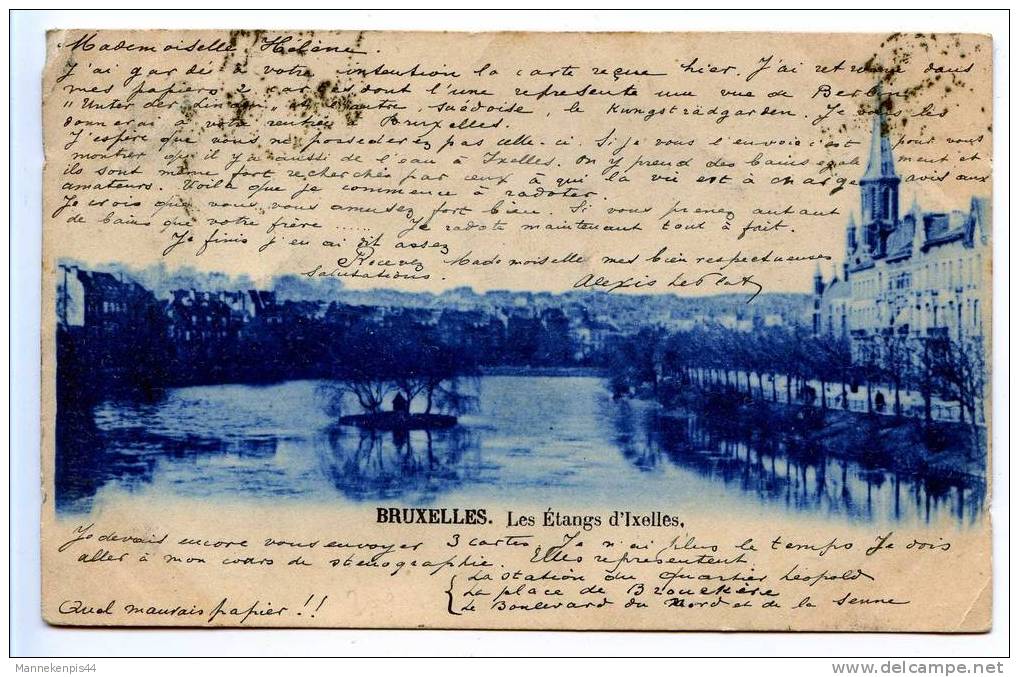 Mademoiselle Hélène.
J'ai gardé à votre intention la carte reçue hier. J'ai retrouvé dans
mes papiers 2 cartes dont l'une représente une vue de Berlin
"Unter der Linden" et l'autre, suédoise, le Kungsträdgarden. Je vous les
donnerai à votre rentrée à Bruxelles.
J'espère que vous ne possederez pas celle-ci. Si je vous l'envoie c'est pour vous
montrer qu'il y a aussi de l'eau à Ixelles. On y prend des bains également et
ils sont même fort recherchés par ceux à qui la vie est à charge avis aux
amateurs. Voilà que je commence à radoter.
Je crois que vous vous amusez fort bien. Si vous prenez autant
de bains que votre frère ...... Je radote maintenant tout à fait.
Je finis j'en ai dit assez
Recevez Mademoiselle mes bien respectueuses
salutations. Alexis
BRUXELLES. Les Étangs d'Ixelles.
Je devais encore vous envoyer 3 cartes. Je n'ai plus le temps Je dois
aller à mon cours de sténographie. Elles représentent.
La station du Quartier Léopold
La place de Brouckère
Le Boulevard du Nord et de la Senne
Quel mauvais papier !!
Mannekenpis44
delcampe.net